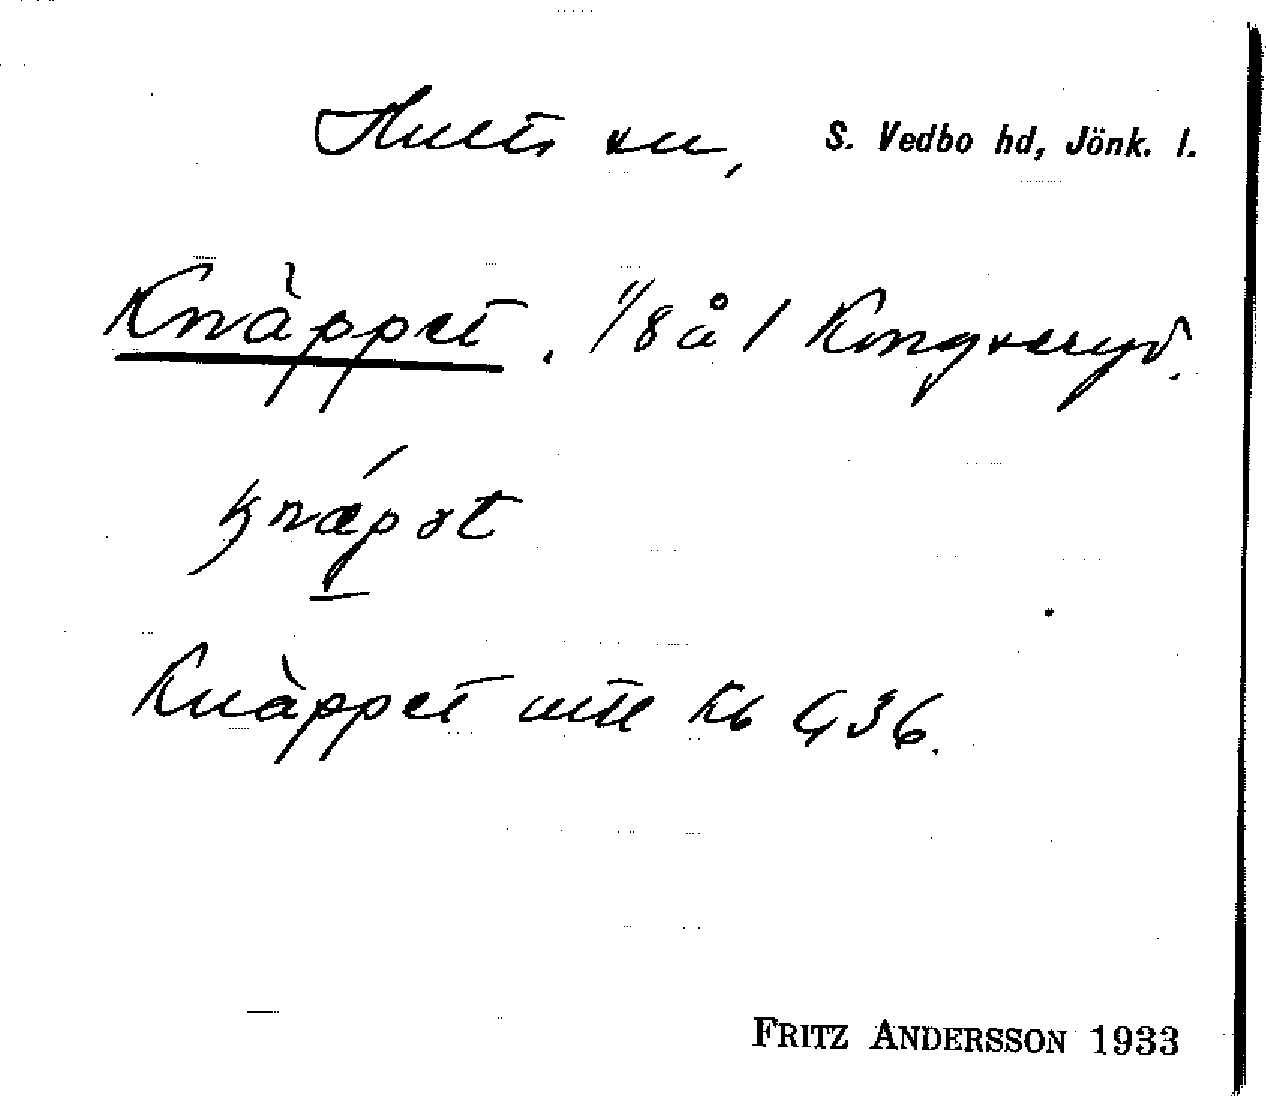 Hults sn, S. Vedbo hd, Jönk. l.
Knäppet. 1/8 å 1 Kongseryd.
knæpət
Knäppet utt Kb 436.
FRITZ ANDERSSON 1933